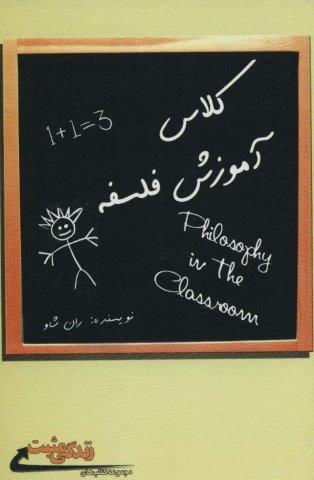 1+1=3
کلاس
آموزش فلسفه
Philosophy
in The
Classroom
نویسنده: ران شاو
زندگی مثبت
مجموعه کتاب‌های